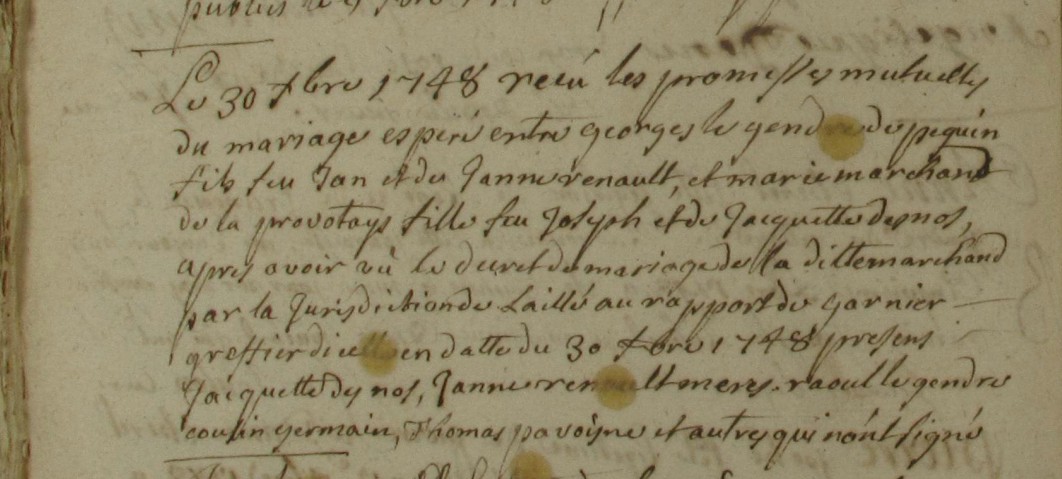 publiés le
Le 30 Xbre 1748 recu les promesses mutuelles
du mariage esperé entre georges le gendre de pequin
fils feu Jan et de Janne renault, et marie marchand
de la provotays fille feu Joseph et de Jacquette desnos,
apres avoir vû le decret de mariage de la ditte marchand
par la Jurisdiction de Laillé au rapport de garnier
greffier dicelle en datte du 30 Xbre 1748 presens
Jacquette desnos, Janne renault meres. raoul le gendre
cousin germain, Thomas pavoisne et autres qui nont signé